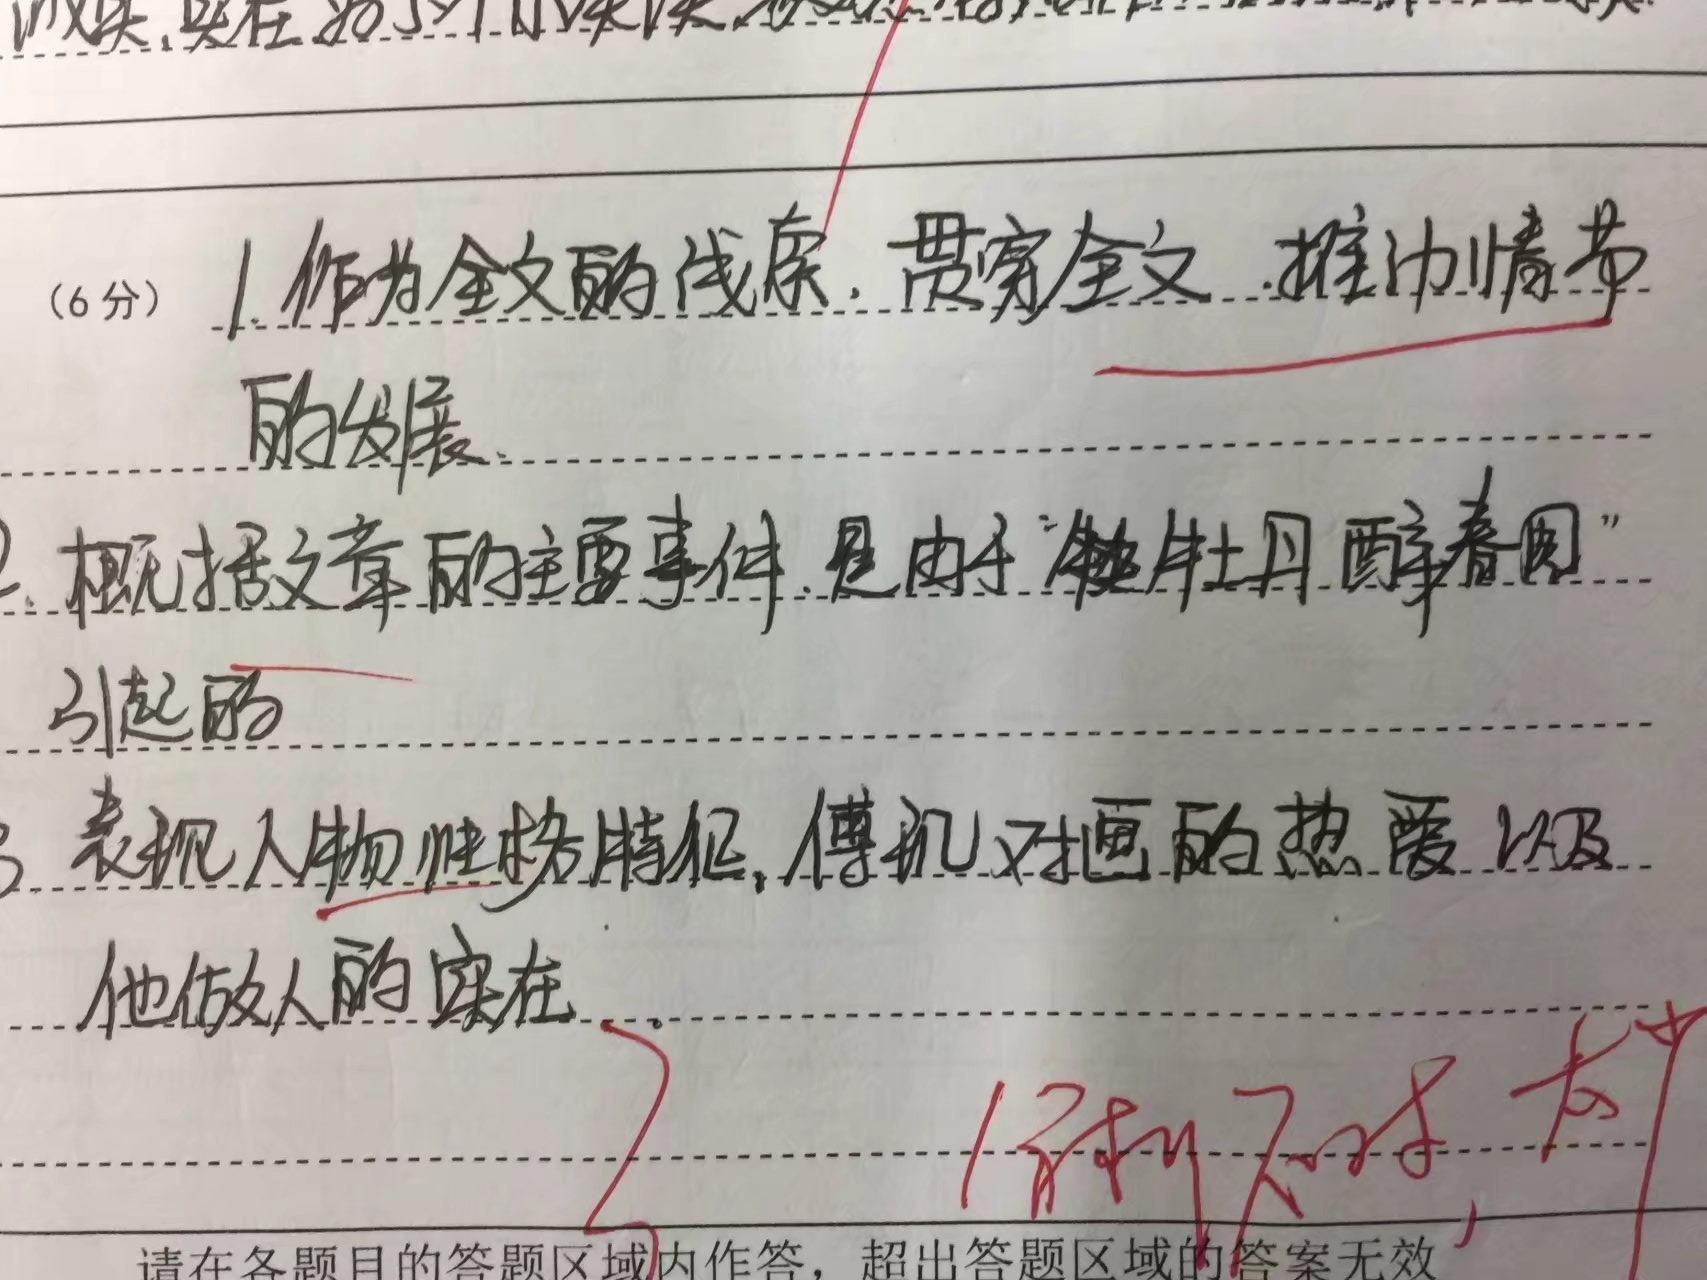 （6分） 1.作为全文的线索.贯穿全文.推动情节
的发展.
2.概括文章的主要事件.是由于“牡丹醉春图”
引起的
3 表现人物性格特征,傅玑对画的热爱以及
他做人的实在.
请在各题目的答题区域内作答，超出答题区域的答案无效